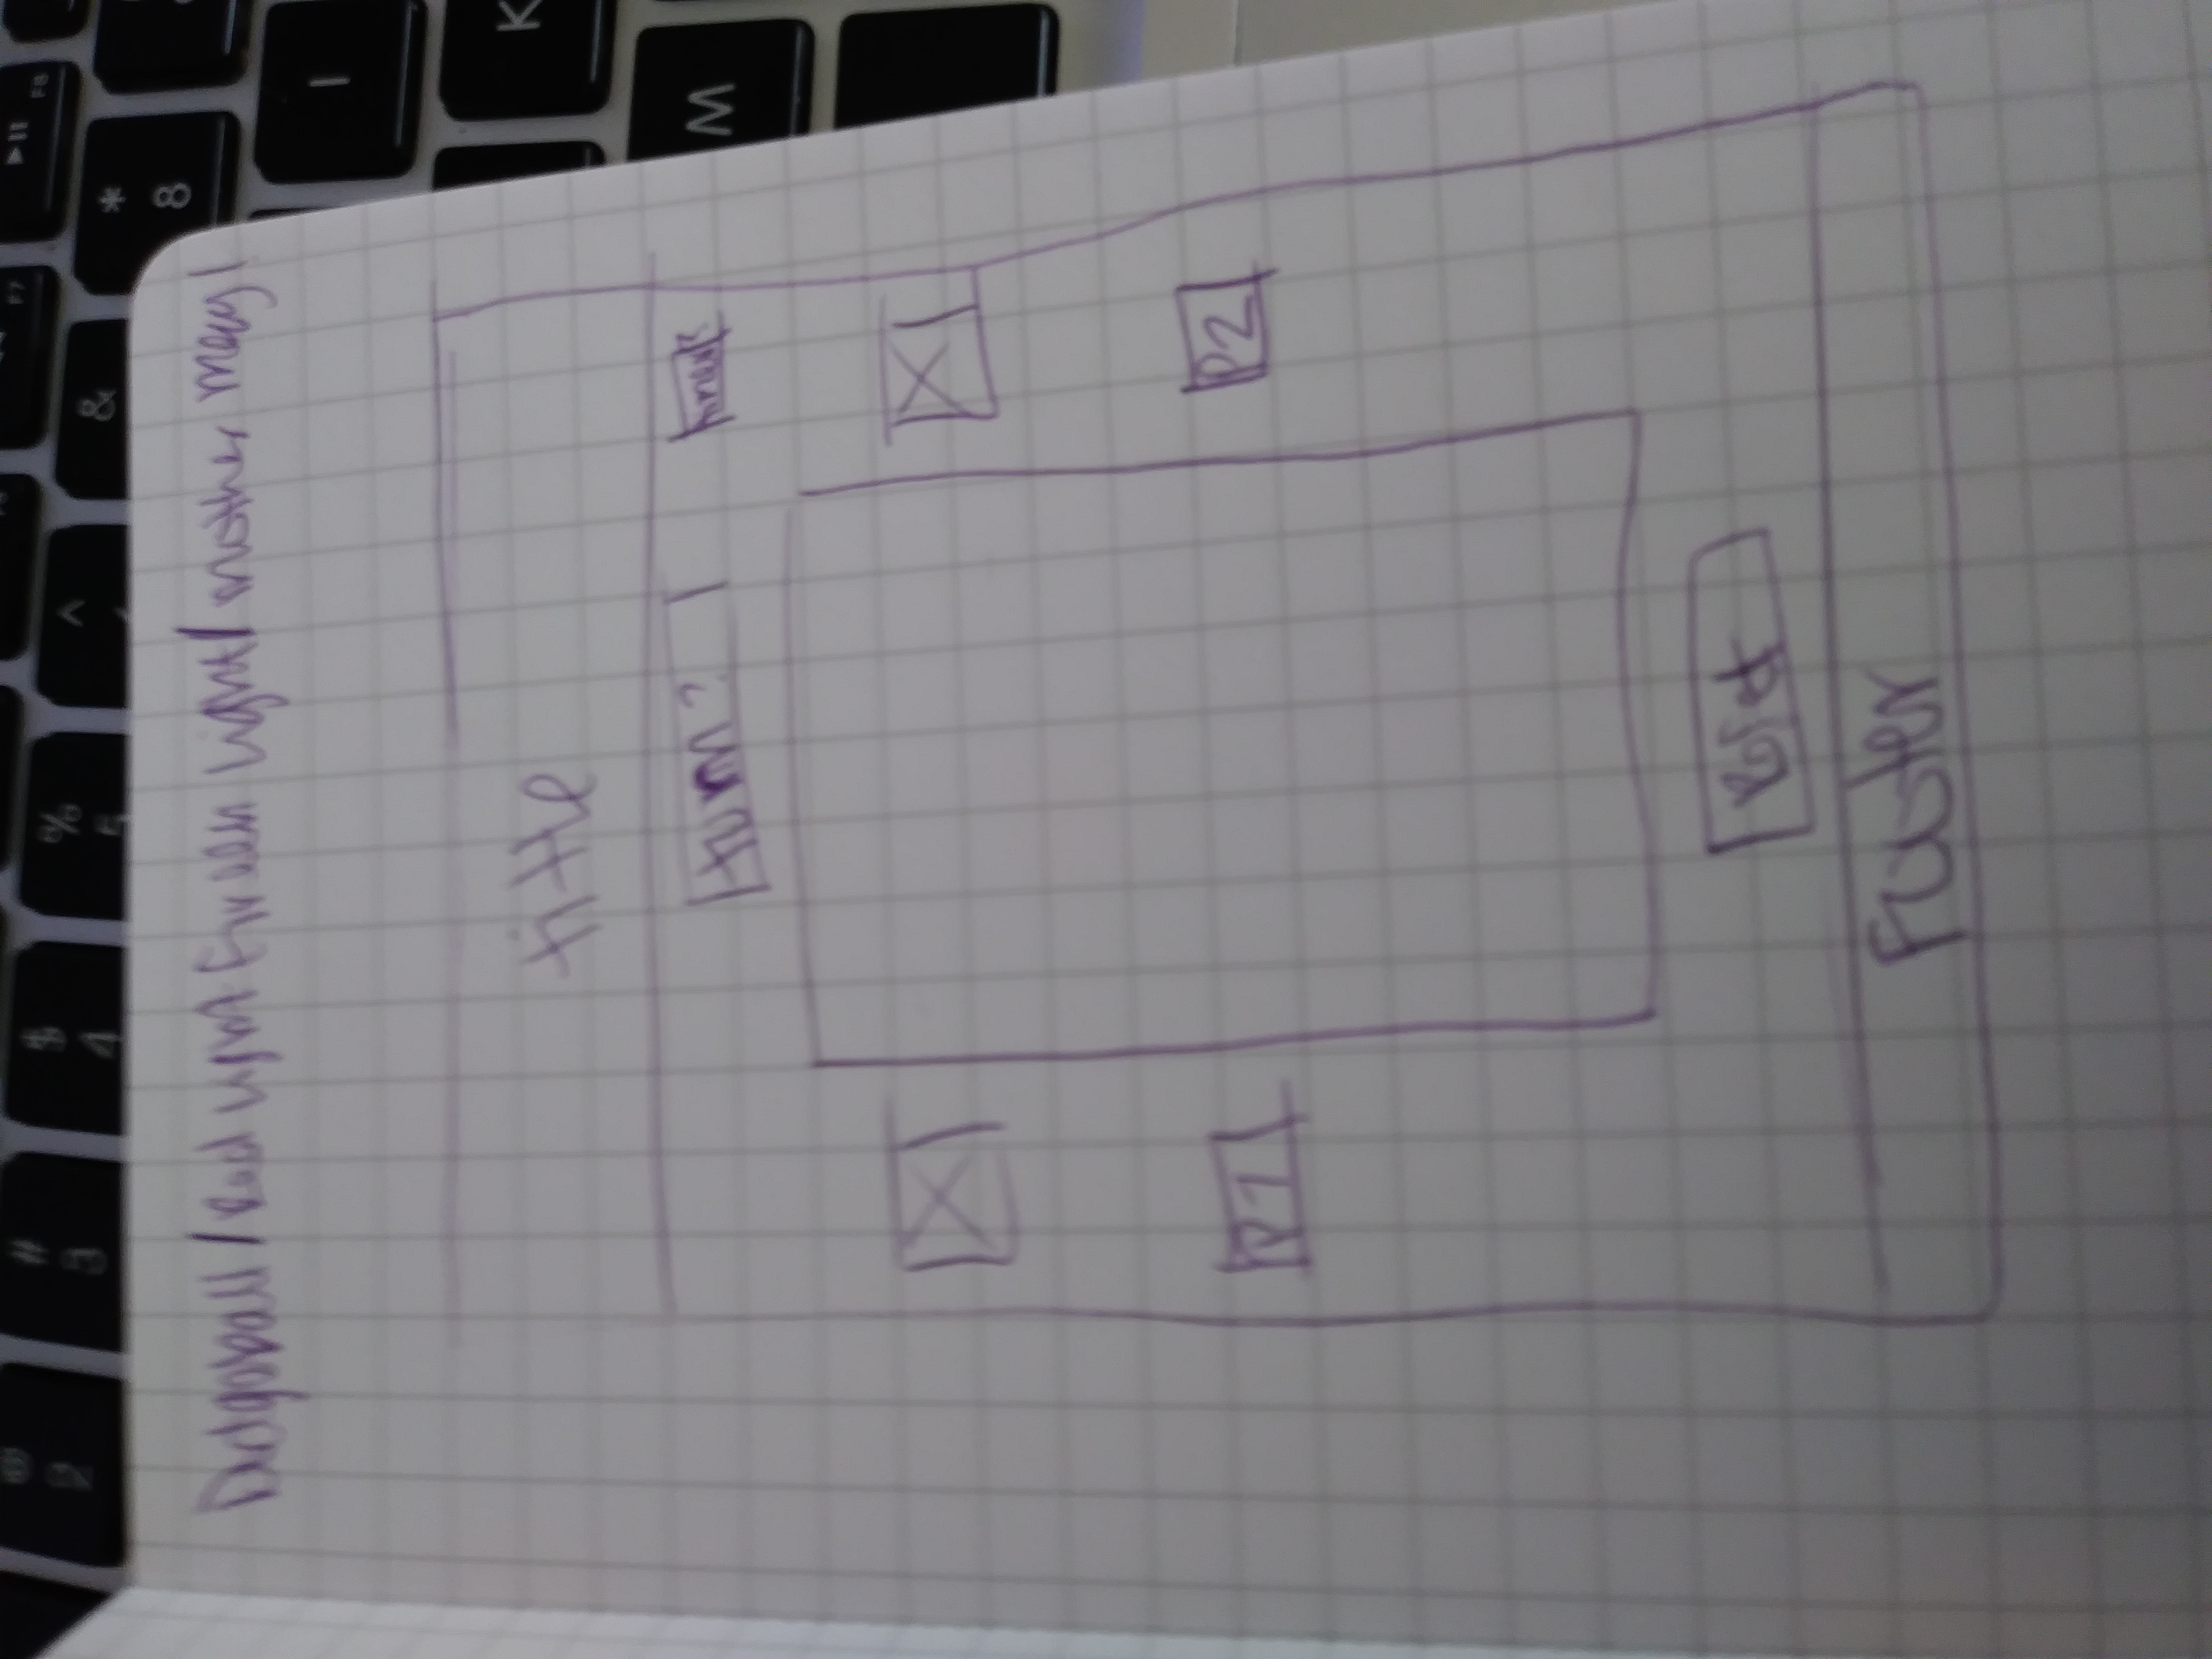 @ # $ % ^ & * F7 F8
2 3 4 5 8
Dodgeball / Red Light Green Light / mother may I
I
title
K
turn?
timer?
M
P1 P2
Reset
Footer